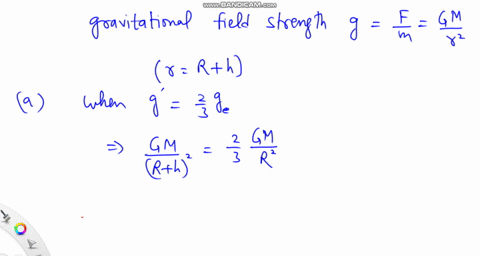 WWW.BANDICAM.COM
gravitational field strength g = F/m = GM/r²
(r = R+h)
(a) when g' = 2/3 gₑ
⇒ GM/(R+h)² = 2/3 GM/R²